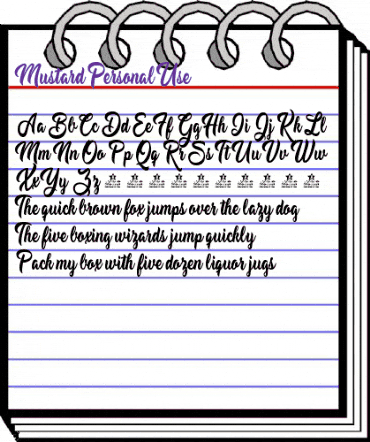 Mustard Personal Use
Aa Bb Cc Dd Ee Ff Gg Hh Ii Jj Kk Ll
Mm Nn Oo Pp Qq Rr Ss Tt Uu Vv Ww
Xx Yy Zz
The quick brown fox jumps over the lazy dog
The five boxing wizards jump quickly
Pack my box with five dozen liquor jugs